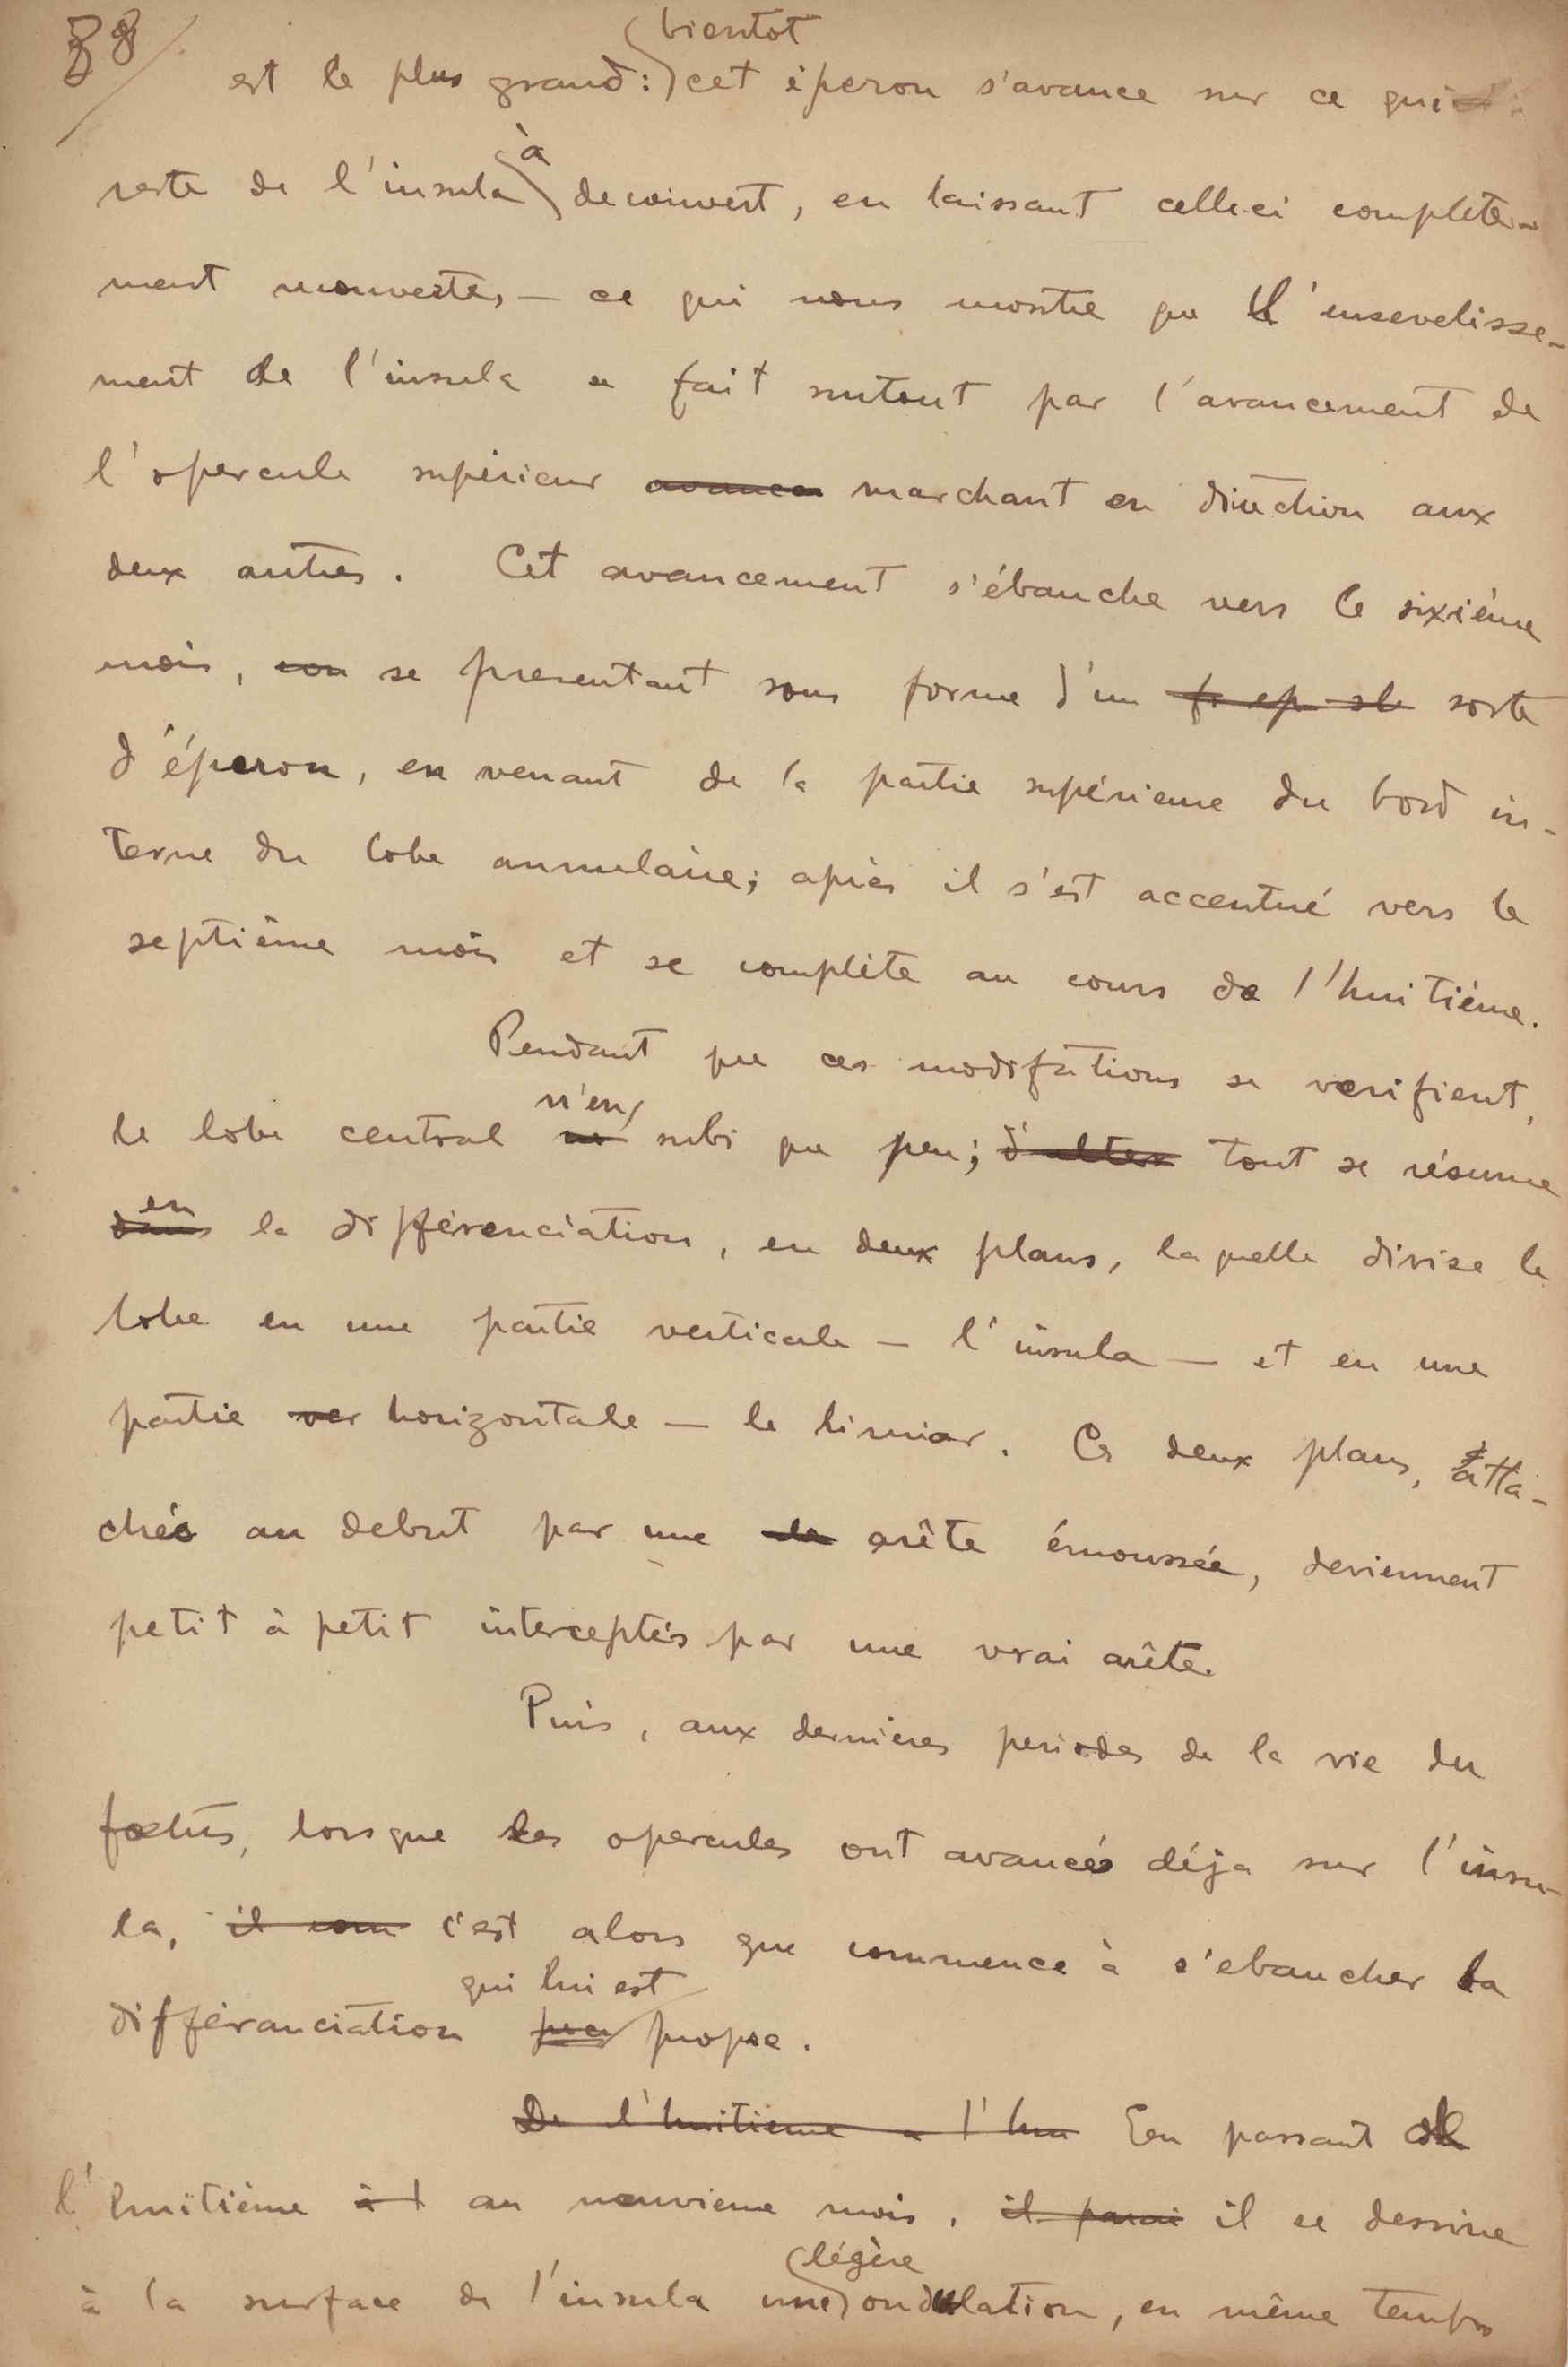 38
est le plus grand: bientot cet éperon s'avance sur ce qui
reste de l'insula à decouvert, en laissant celle-ci complete-
ment recouverte, — ce qui nous montre que l'ensevelisse-
ment de l'insula se fait surtout par l'avancement de
l'opercule supérieur avancer marchant en direction aux
deux autres. Cet avancement s'ébauche vers le sixième
mois, con se presentant sous forme d'un sorte
d'éperon, en venant de la partie supérieure du bord in-
terne du lobe annulaire; après il s'est accentué vers le
septième mois et se complète au cours de l'huitième.
Pendant que ces modifations se verifient,
le lobe central n'en subi que peu; d'alter tout se résume
dans en la différenciation, en deux plans, laquelle divise le
lobe en une partie verticale — l'insula — et en une
partie ver horizontale — le limiar. Ces deux plans, atta-
chés au debut par une de arête émoussée, deviennent
petit à petit interceptés par une vrai arête.
Puis, aux dernières periodes de la vie du
foetus, lorsque les opercules ont avancés déja sur l'insu-
la, il com c'est alors que commence à s'ebaucher la
différanciation qui lui est propre.
De l'huitieme a l'hu En passant de
l'huitième à l au neuvieme mois, il parai il se dessine
à la surface de l'insula une légère ondulation, en même temps